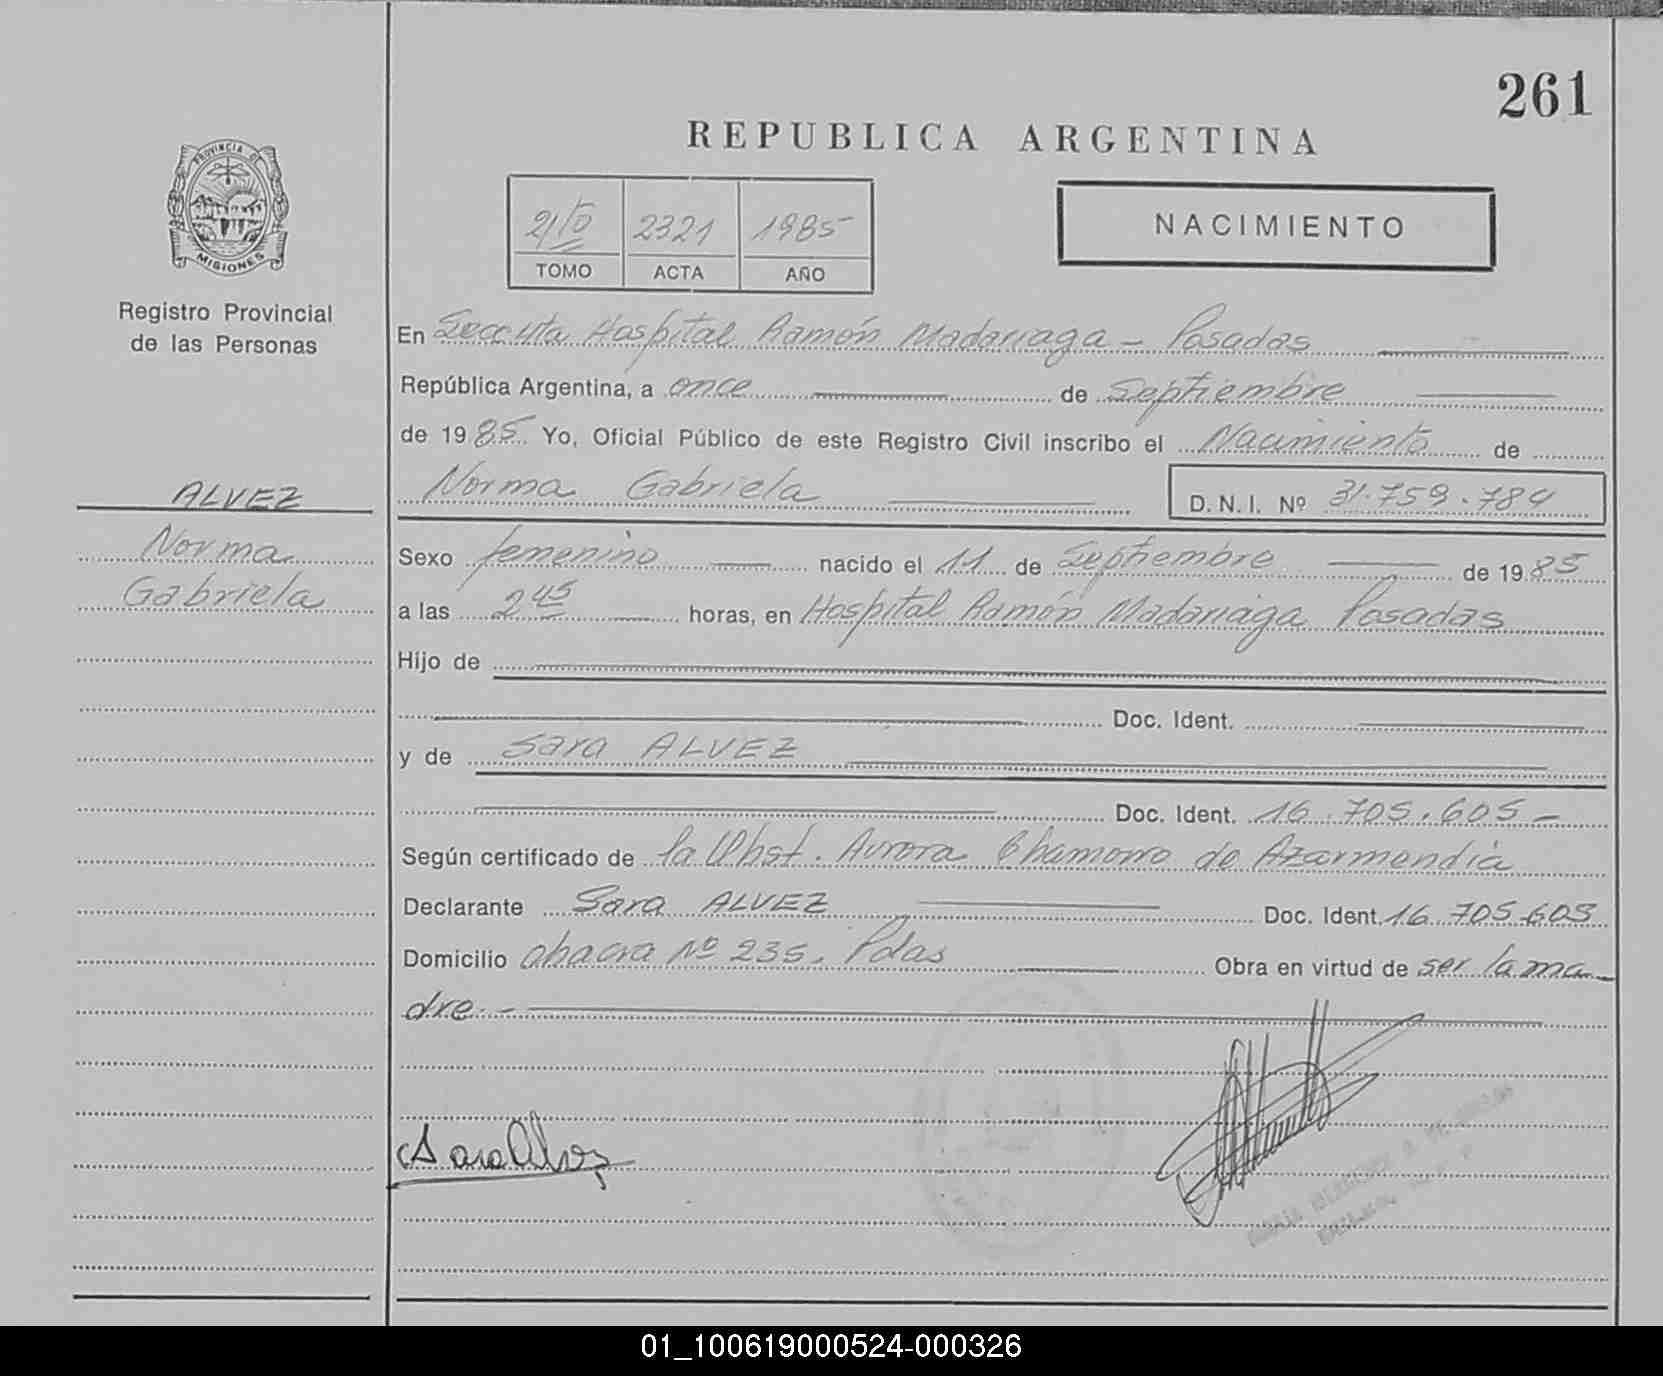 261
REPUBLICA ARGENTINA
PROVINCIA DE
MISIONES
Registro Provincial
de las Personas
2321 1985
TOMO ACTA AÑO
NACIMIENTO
En Hospital Ramón Madariaga - Posadas
República Argentina, a once de Septiembre
de 1985. Yo, Oficial Público de este Registro Civil inscribo el Nacimiento de
Norma Gabriela D.N.I. Nº 31.759.784
ALVEZ
Norma
Gabriela
Sexo femenino nacido el 11 de Septiembre de 1985
a las 2 45 horas, en Hospital Ramón Madariaga Posadas
Hijo de
Doc. Ident.
y de Sara ALVEZ
Doc. Ident. 16.705.605 -
Según certificado de la Obst. Aurora Chamorro de Azarmendia
Declarante Sara ALVEZ Doc. Ident. 16.705.605
Domicilio Nº 235. Pdas Obra en virtud de ser la ma
dre. -
Sara Alvez
01_100619000524-000326